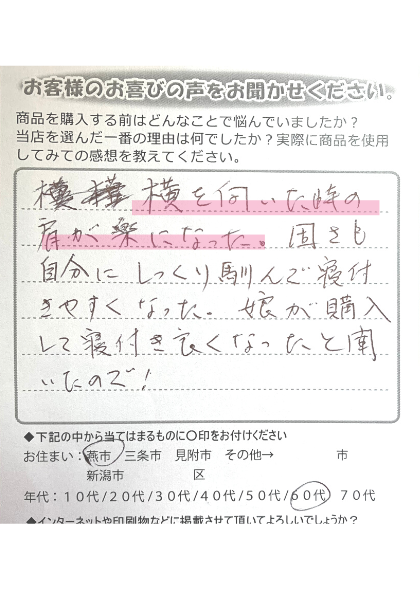 お客様のお喜びの声をお聞かせください。
商品を購入する前はどんなことで悩んでいましたか？
当店を選んだ一番の理由は何でしたか？実際に商品を使用
してみての感想を教えてください。
横を向いた時の
肩が楽になった。固さも
自分にしっくり馴んで寝付
きやすくなった。娘が購入
して寝付き良くなったと聞
いたので！
◆下記の中から当てはまるものに〇印をお付けください
お住まい：燕市 三条市 見附市 その他→ 市
新潟市 区
年代：１０代/２０代/３０代/４０代/５０代/６０代 ７０代
◆インターネットや印刷物などに掲載させて頂いてよろしいでしょうか？